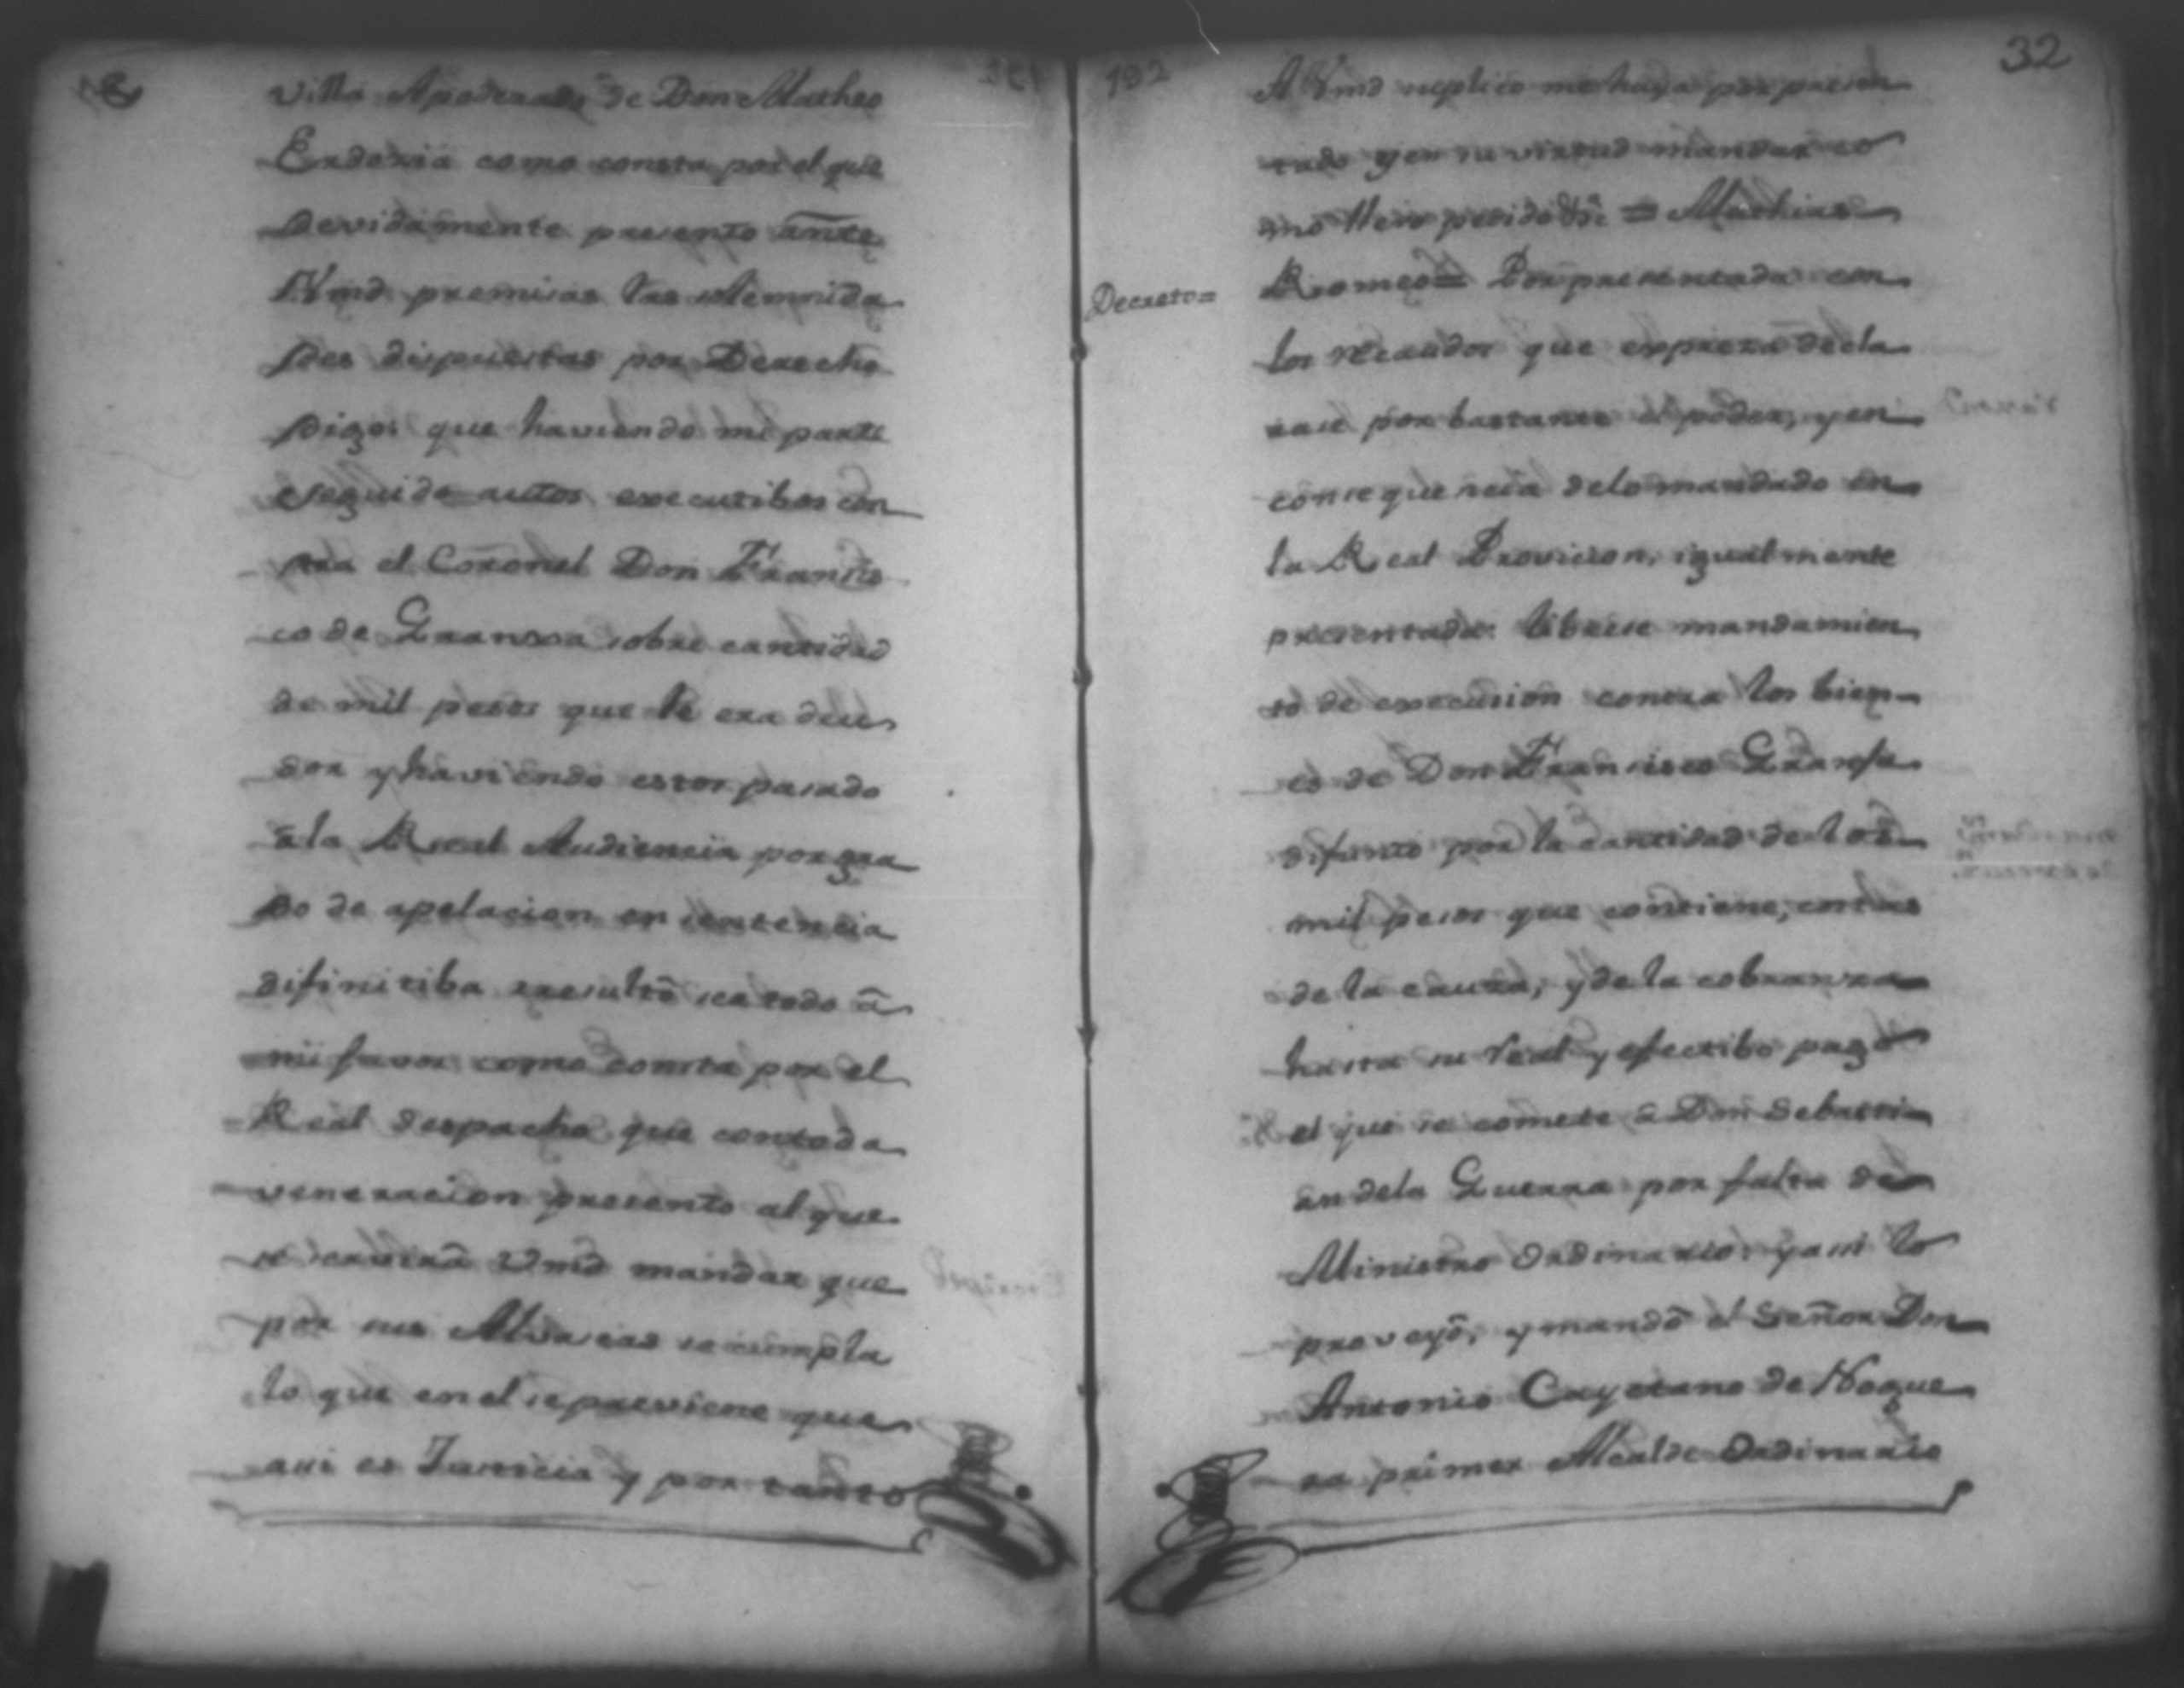 villa Apoderado de Don Matheo
Erdoxia como consta por el que
devidamente presento ante
Vmd premisas las solemnida
des dispuestas por Derecho
Digo: que haviendo mi parte
seguido autos executibos con
tra el Coronel Don Francis
co de Granxa sobre cantidad
de mil pesos que le era deu
dor y haviendo estos pasado
â la Real Audiencia por gra
do de apelacion en sentencia
difinitiba resultô ser todo â
mi favor como consta por el
Real despacho que con toda
veneracion presento al que
se servirâ Vmd mandar que
por sus Alvaceas se cumpla
lo que en el se previene que
aui es Justicia y por tanto
192
32
A Vmd suplico me haya por presen
tado y en su virtud mandar co
mo llevo pedido = Mathias
Romeo = Por presentada con
Decreto =
los recaudos que expresa decla
rase por bastante el poder, y en
consequencia de lo mandado en
la Real Provicion, igualmente
presentada: librese mandamien
to de execusion contra los bien
es de Don Francisco Gransa
difunto por la cantidad de los
mil pesos que contiene, costas
de la cauza, y de la cobranza
hasta su real y efectibo pago
el que se comete â Don Sebasti
an dela Guerra por falta de
Ministro Ordinario: y assi lo
proveyô, y mandô el Señor Don
Antonio Cayetano de Nogue
ra primer Alcalde Ordinario